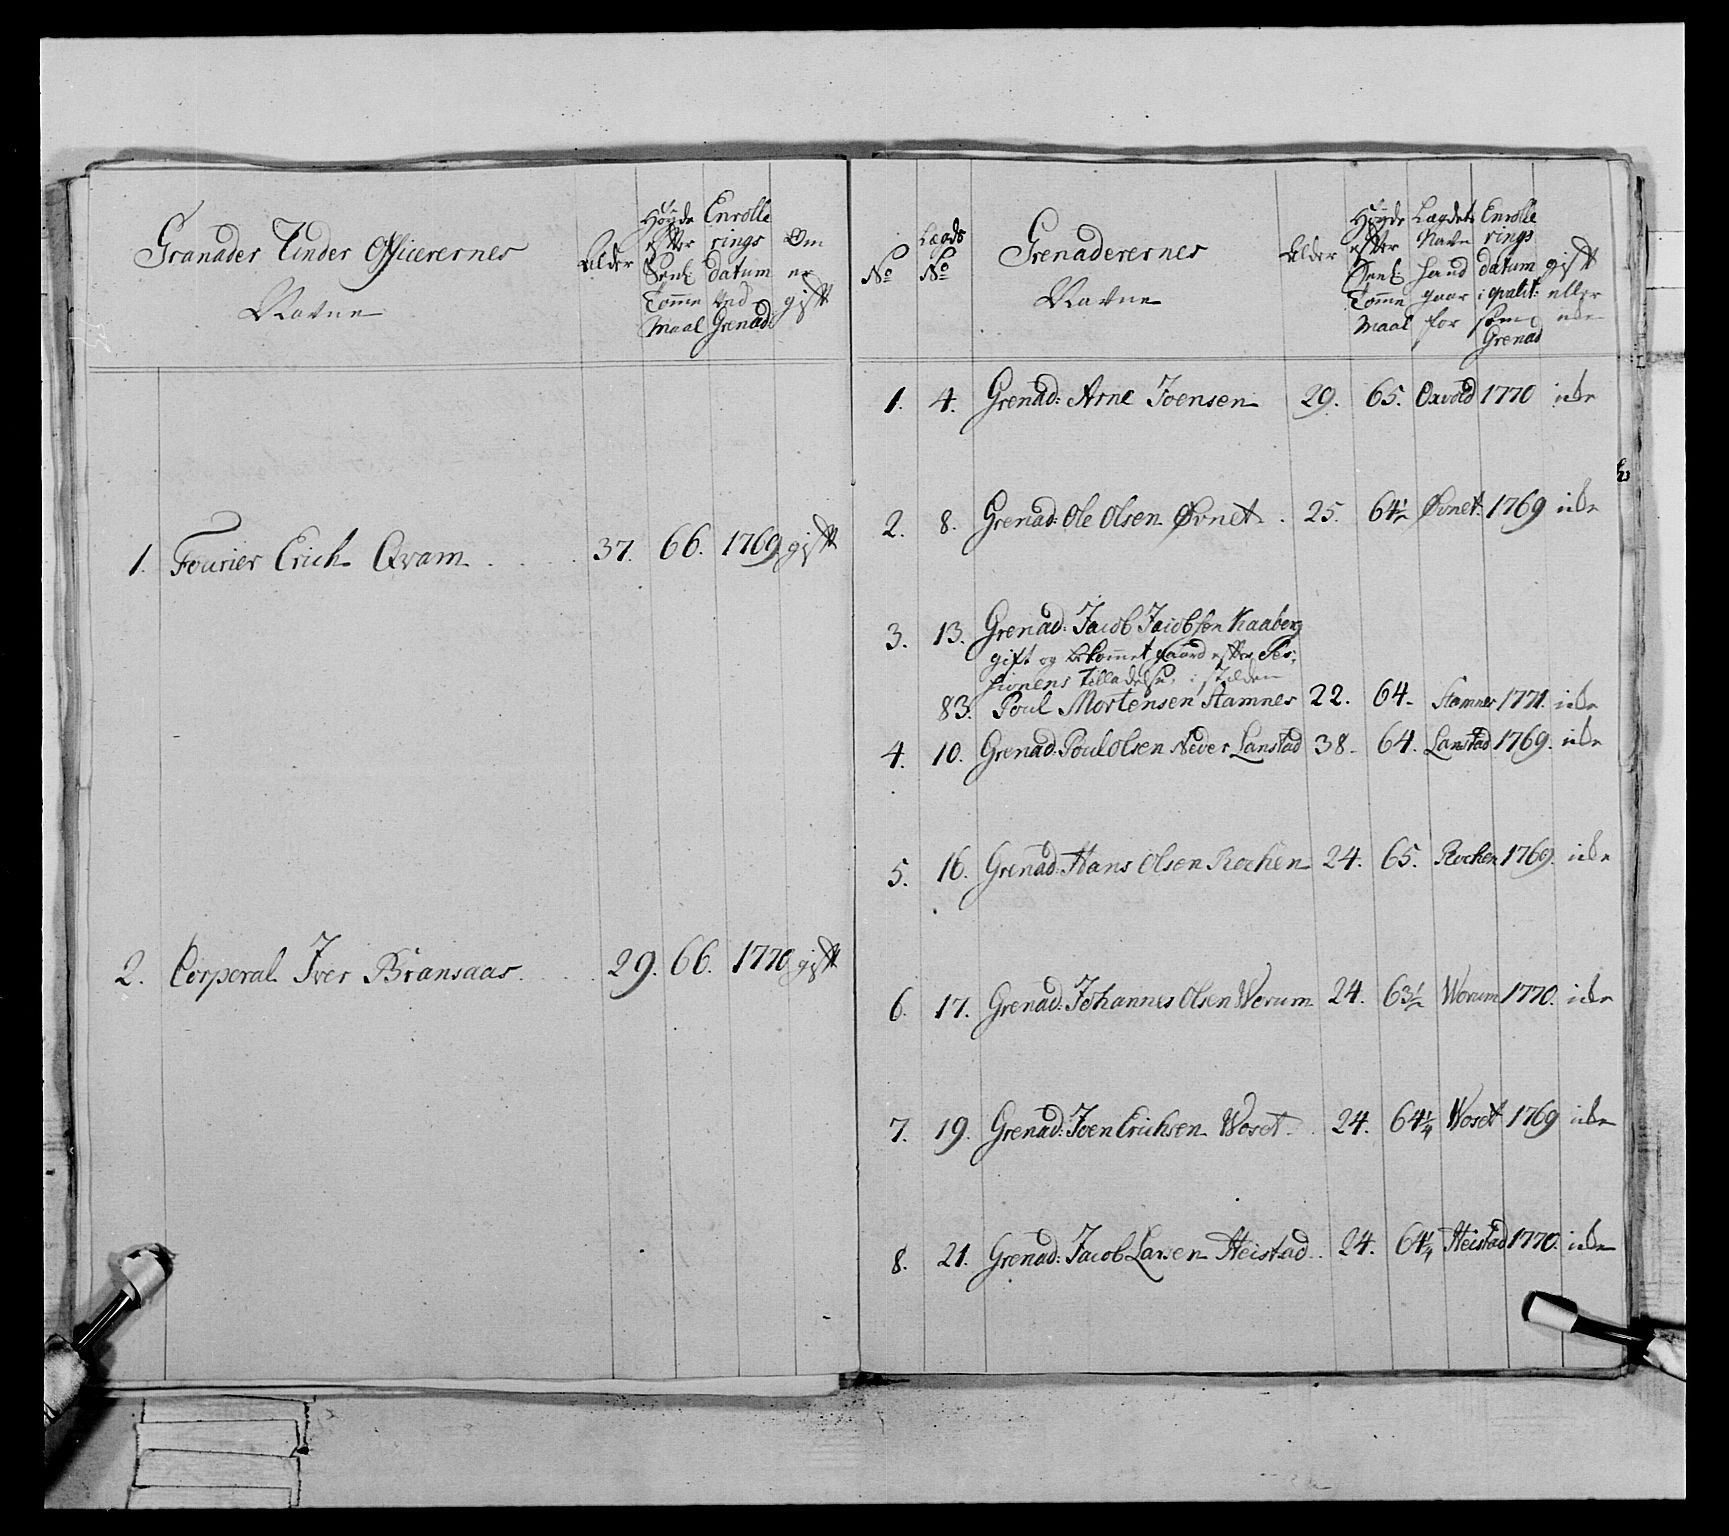 Granader Under Officerernes
Navne
Alder
Høyde
efter
Tomme
Maal
Enrolle
rings
datum
ved
Grenad:
Om
er
gift
1. Fourier Erich Qvam . . . 37. 66. 1769 gift
2. Corporal Iver Bransaas . . 29. 66. 1770 gift
No
Lægds
No
Grenaderernes
Navne
Alder
Høyde
efter
Tomme
Maal
Lægdets
Navn
hand
gaar
for
Enrolle
rings
datum
i qvalit:
som
Grenad
gift
eller
1. 4. Grenad: Arne Joensen 29. 65. Oxvold 1770
2. 8. Grenad: Ole Olsen Øvnet . 25. 64½ Øvnet 1769
3. 13. Grenad: Jacob Jacobsen Kaaberg
gift og bekommet gaard efter Ses:
sionens Tilladelse, i stæden
83. Poul Mortensen Stamnes 22. 64. Stamnes 1771.
4. 10. Grenad: Poul Olsen Neder Lanstad 38. 64. Lanstad 1769.
5. 16. Grenad: Hans Olsen Rochen 24. 65. Rochen 1769.
6. 17. Grenad: Johannes Olsen Worum 24. 63½ Worum 1770.
7. 19. Grenad: Joen Erichsen Woset 24. 64¼ Woset 1769
8. 21. Grenad: Jacob Larsen Heistad . 24. 64¼ Heistad 1770.